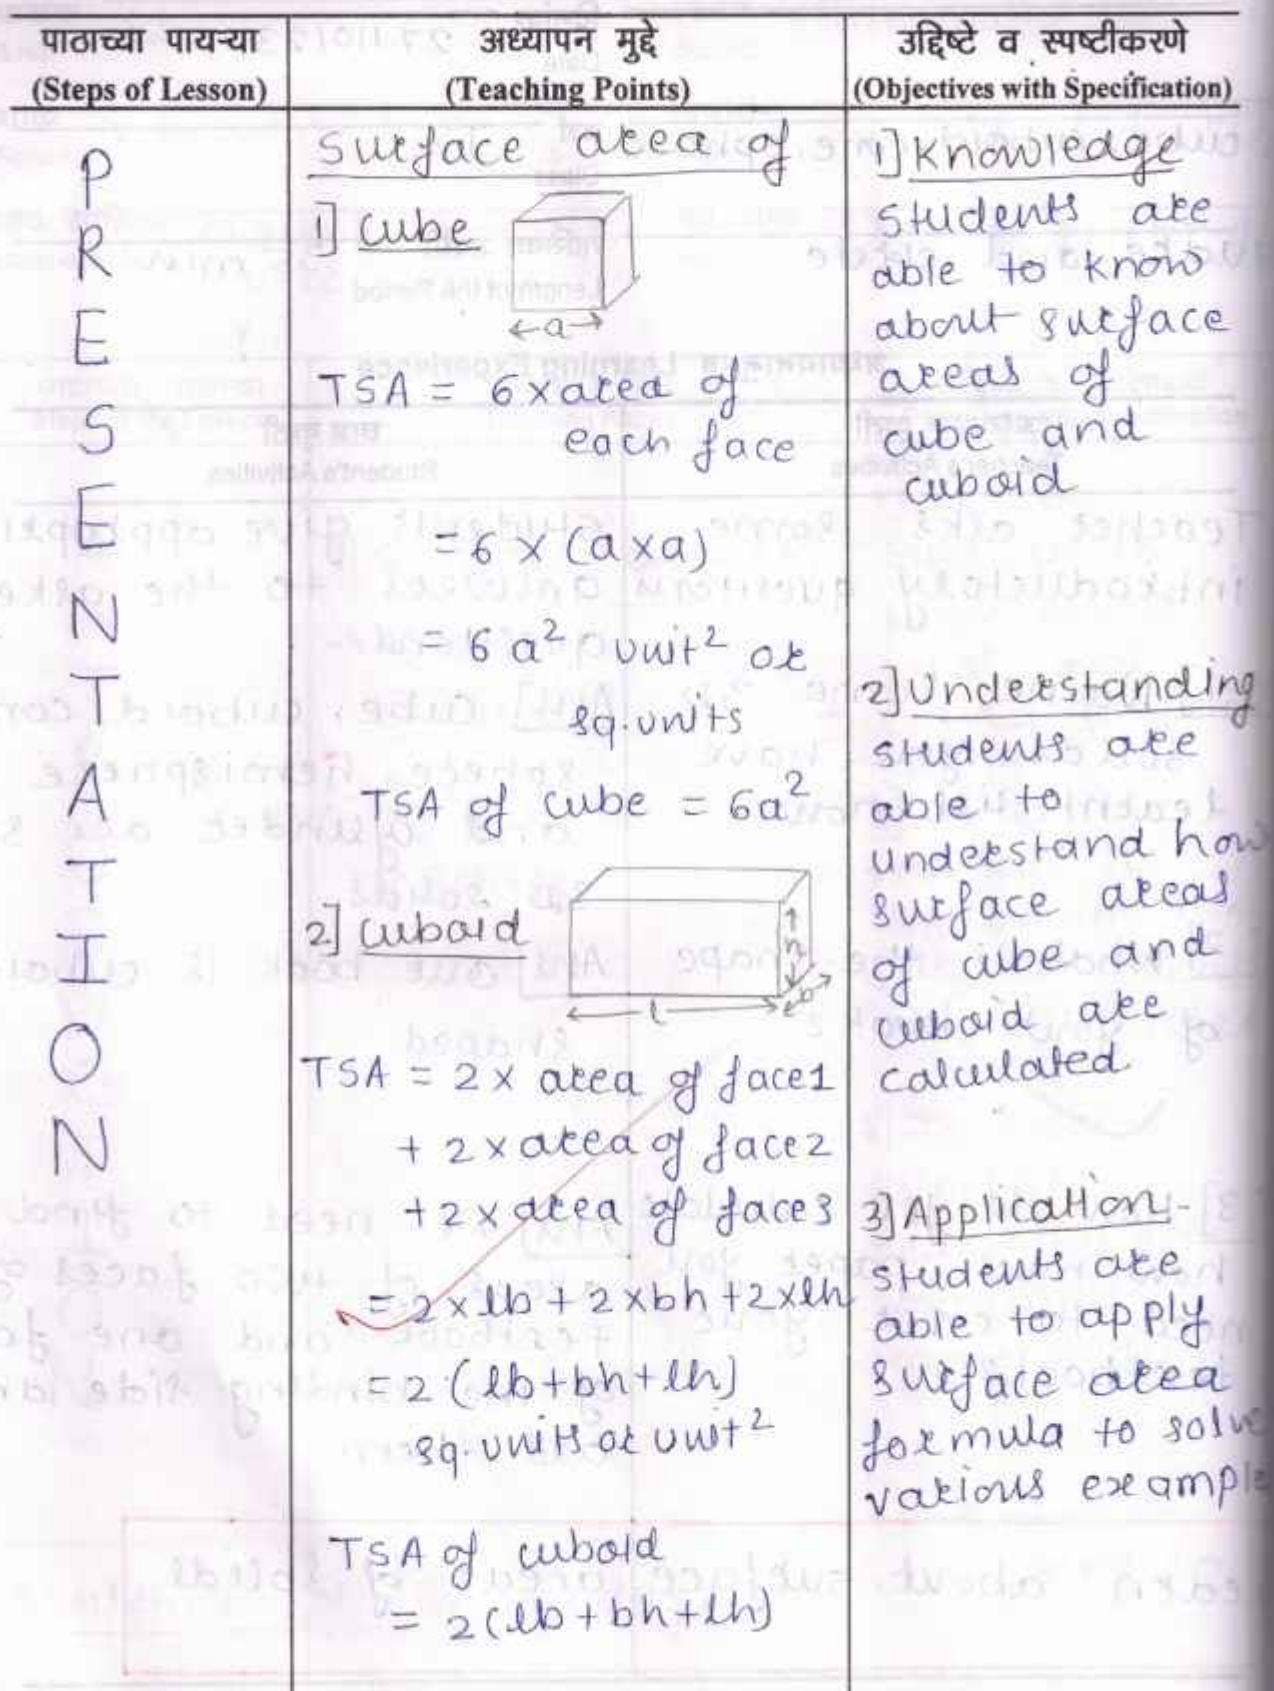 पाठाच्या पायऱ्या
(Steps of Lesson)
अध्यापन मुद्दे
(Teaching Points)
उद्दिष्टे व स्पष्टीकरणे
(Objectives with Specification)
P
R
E
S
E
N
T
A
T
I
O
N
Surface area of
1] cube
a
TSA = 6 x area of
each face
= 6 x (a x a)
= 6 a² unit² or
sq. units
TSA of cube = 6a²
2] cuboid
h
b
l
TSA = 2 x area of face1
+ 2 x area of face2
+ 2 x area of face3
= 2 x lb + 2 x bh + 2 x lh
= 2 (lb + bh + lh)
sq. units or unit²
TSA of cuboid
= 2(lb + bh + lh)
1] Knowledge
students are
able to know
about surface
areas of
cube and
cuboid
2] Understanding
students are
able to
understand how
surface areas
of cube and
cuboid are
calculated
3] Application -
students are
able to apply
surface area
formula to solve
various example